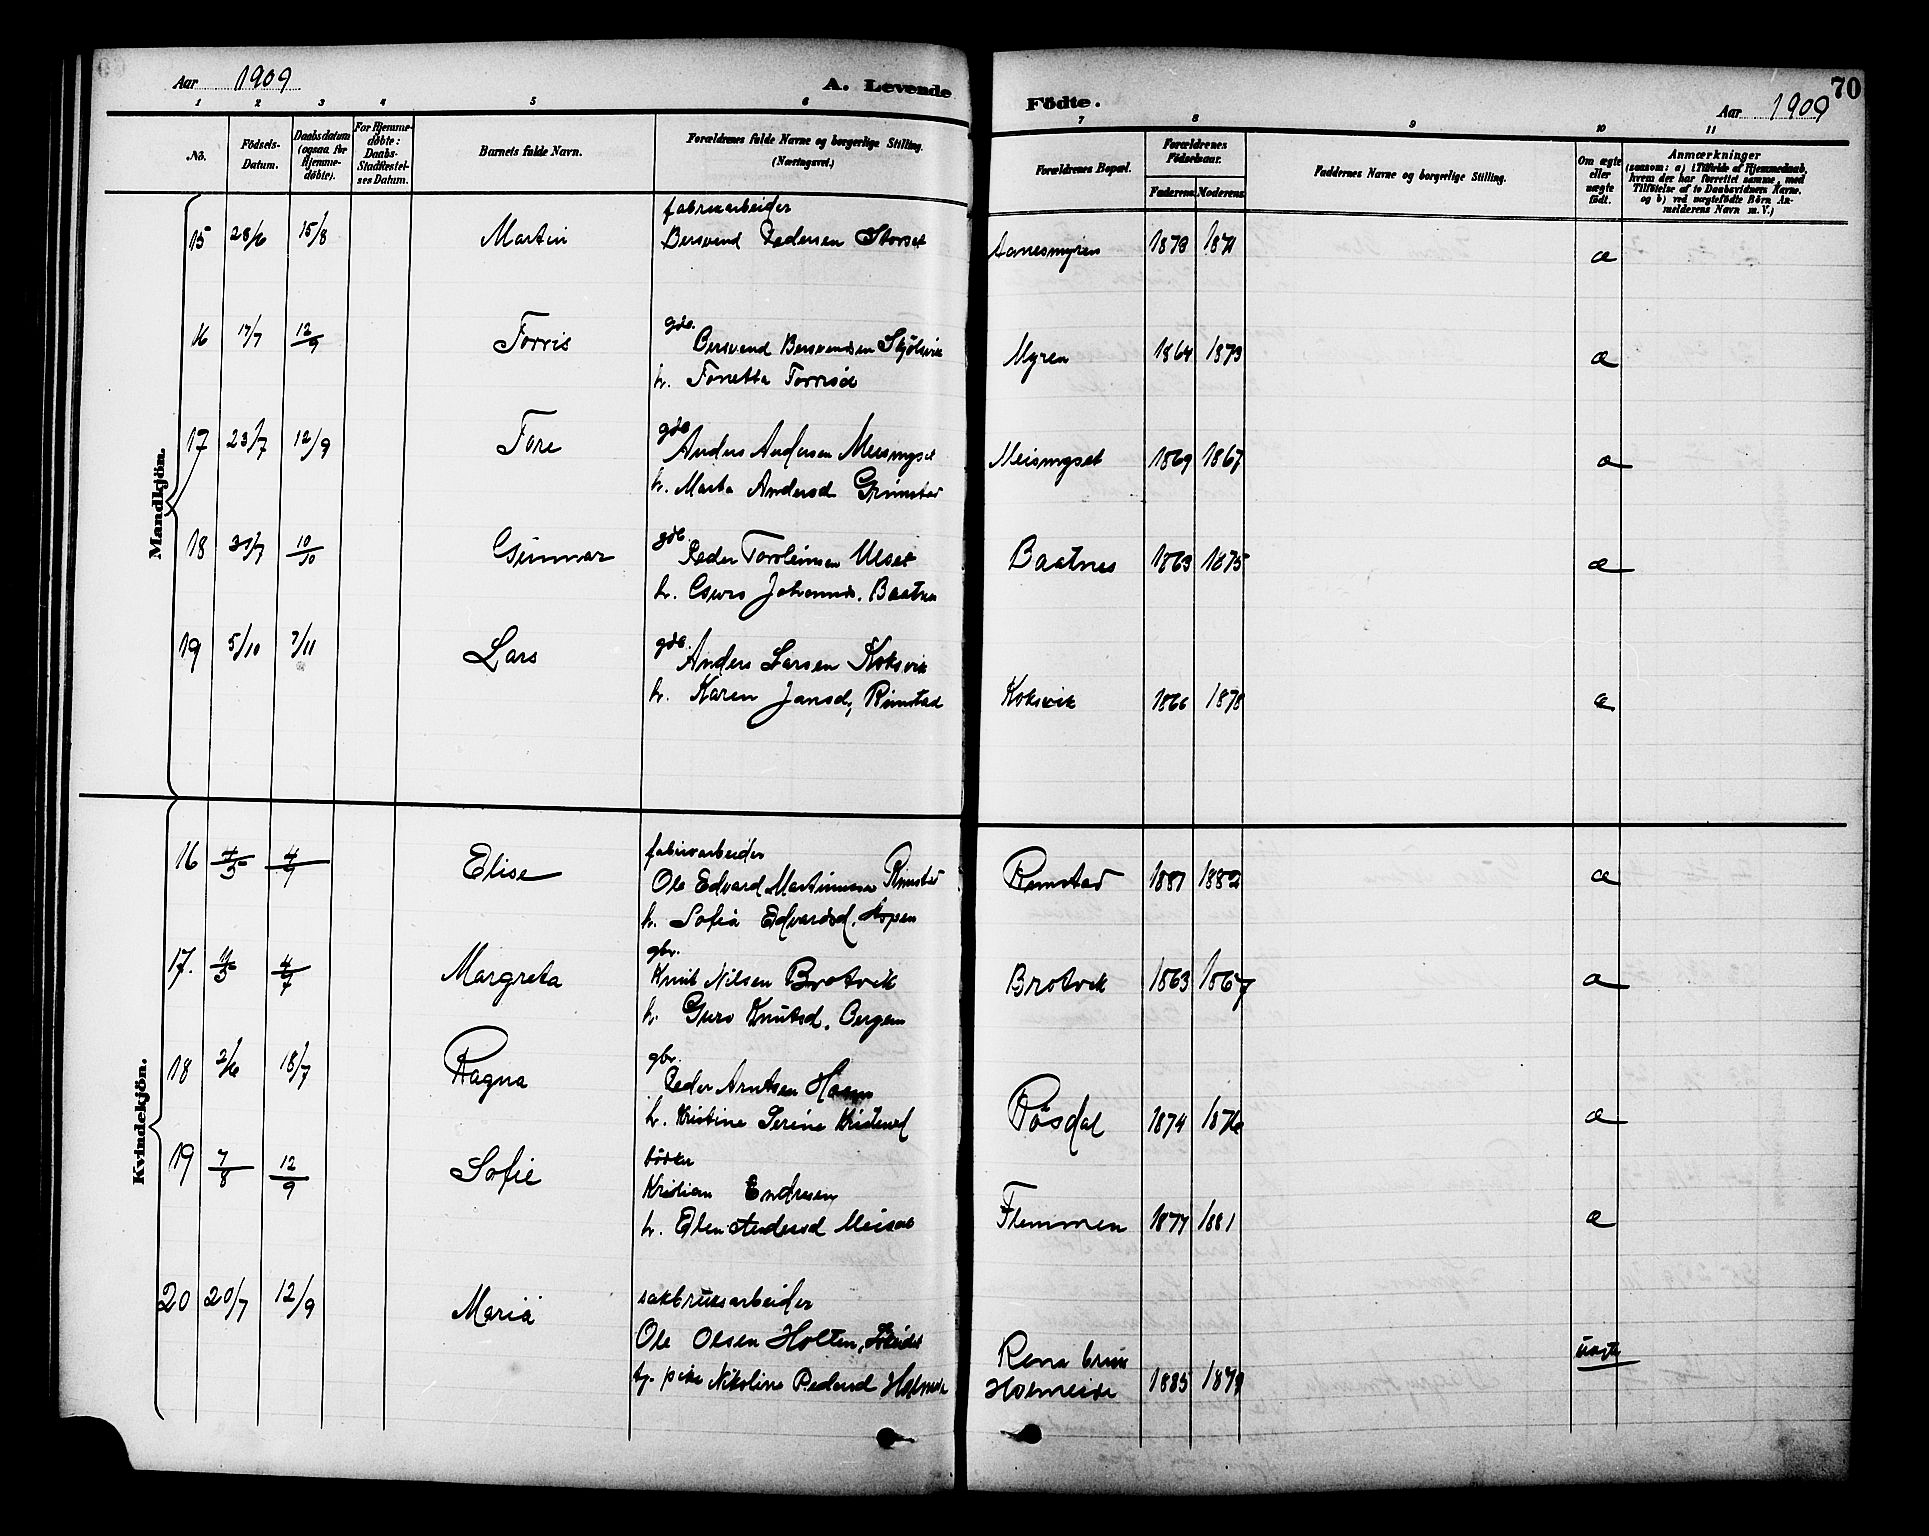 Aar 1909
A. Levende
Födte.
70
Aar 1909
1 2 3 4 5 6 7 8 9 10 11
No.
Födsels-Datum.
Daabsdatum (ogsaa for Hjemme-döbte).
For Hjemme-döbte: Daabs-Stadfæstel-ses Datum.
Barnets fulde Navn.
Forældrenes fulde Navne og borgerlige Stilling. (Næringsvei.)
Forældrenes Bopæl.
Forældrenes Födselsaar.
Faderens. Moderens.
Faddernes Navne og borgerlige Stilling.
Om ægte eller uægte födt.
Anmærkninger
(saasom: a) i Tilfælde af Hjemmedaab, hvem der har forrettet samme, med Tilföielse af to Daabsvidners Navne, og b) ved uægtefödte Börn An-melderens Navn m. V.)
Mandkjön.
fabrikarbeider
15 28/6 15/8 Martin Bersvend Pedersen Storset Aanesmyren 1878 1871 æ
gbr.
16 17/7 12/9 Torris Bersvend Bersvendsen Skjölsvik Myren 1864 1873 æ
h. Tonetta Torrisd
gbr
17 23/7 12/9 Tore Anders Andersen Meismyset Meismyset 1869 1867 æ
h. Marta Andersd Grimstad
gbr.
18 31/7 10/10 Gunnar Peder Torleivsen Ulset Baatnes 1863 1875 æ
h. Guro Johannesd. Baatnes
gbr.
19 5/10 7/11 Lars Anders Larsen Koksvik
h. Karen Jansd, Rimstad Koksvik 1866 1878 æ
Kvindekjön.
fabrikarbeider
16 4/5 4/7 Elise Ole Edvard Martinussen Rimstad Rimstad 1881 1882 æ
h. Sofia Edvardsd. Hopen
gbr.
17. 11/5 4/7 Margreta Knut Nilsen Brotvik Brotvik 1863 1867 æ
h. Guro Knutsd. Bergem
gbr.
18 2/6 18/7 Ragna Peder Arntsen
h. Kristine Serine Kristensd Rösdal 1874 1876 æ
bödker
19 7/8 12/9 Sofie Kristian Endresen
h. Elen Andersd Meisal Flemmen 1877 1881 æ
sakbruksarbeider
20 20/7 12/9 Maria Ole Olsen Holten, Rena bruk uægte
tg. pike Nikoline Pedersd Holmeide Holmeide 1885 1879